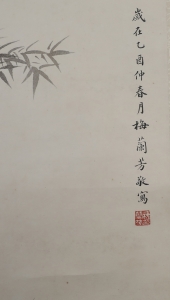 歲在乙酉仲春月梅蘭芳敬寫